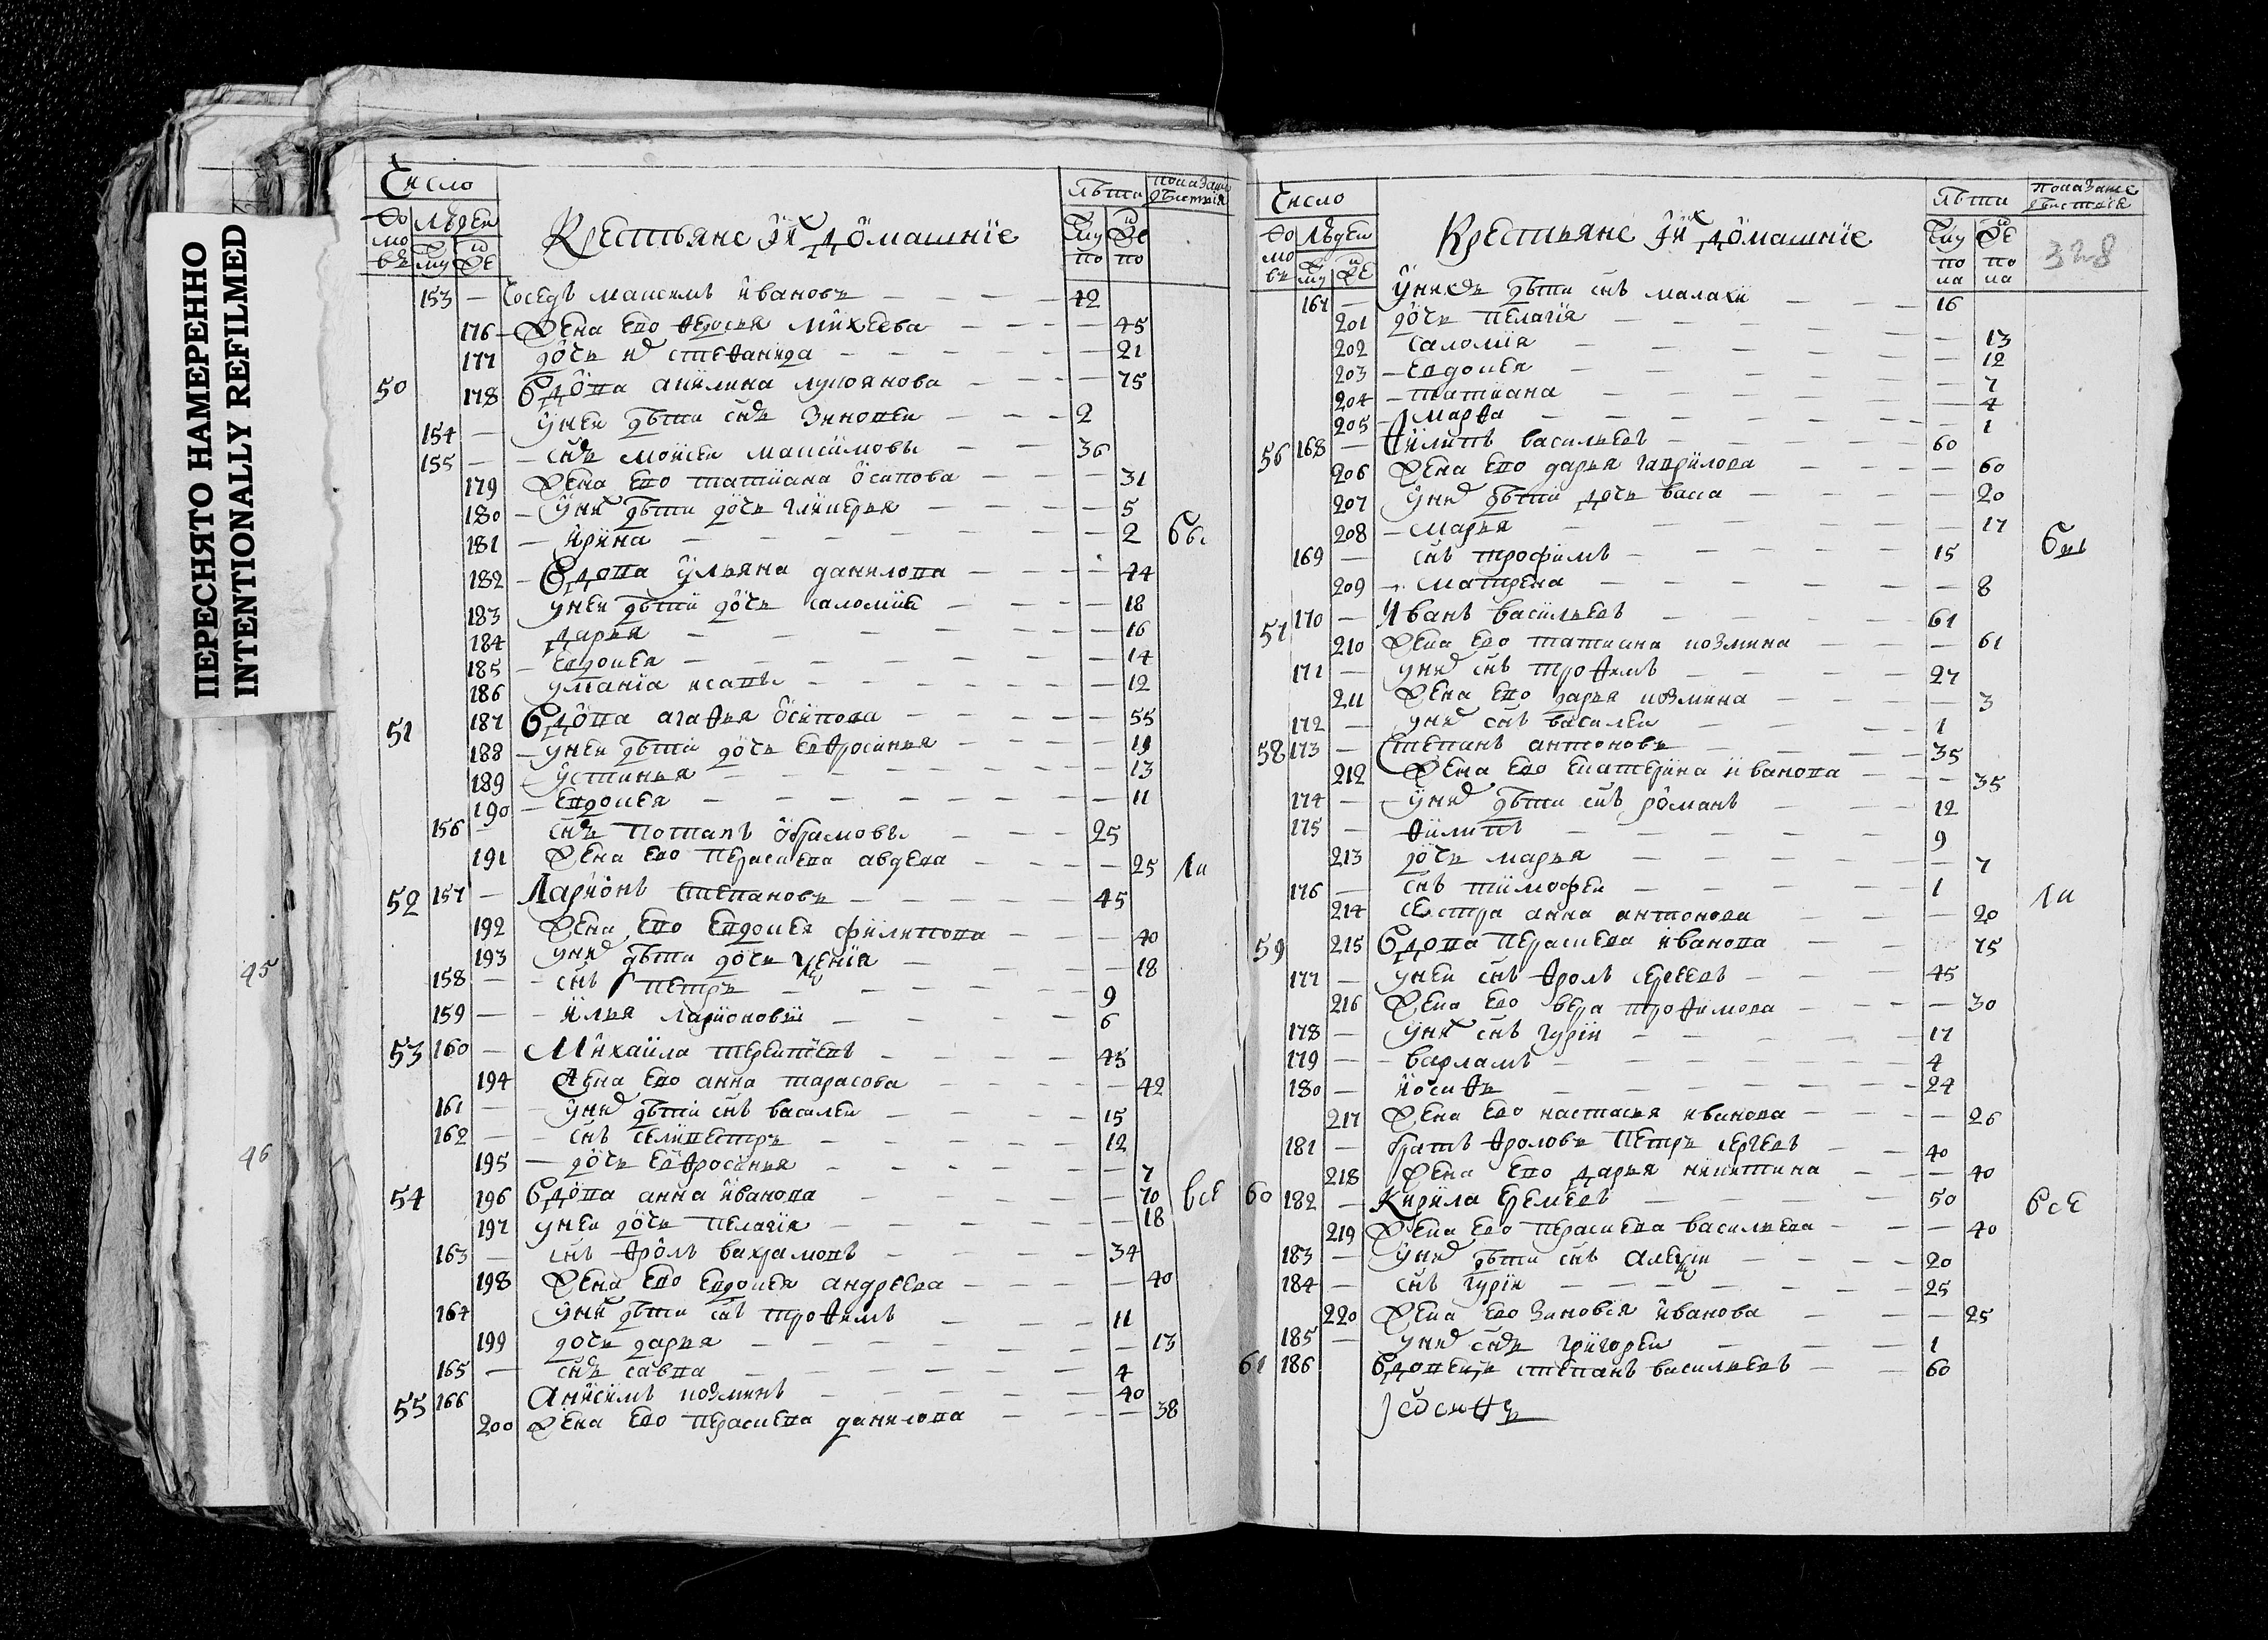 ПЕРЕСНЯТО НАМЕРЕННО
INTENTIONALLY REFILMED
45
46
Число
Лѣта
Крестьяне и их домашнїе
153 — Сосед Максимъ Ивановъ — 42
176 — Жена ево Федосья Михеева — 45
177 дочь их Стефанида — 21
50 178 Вдова Акилина Лукоянова — 75
154 — У неи дѣти снъ Зиновеи — 2
155 — снъ Моисеи Максимовъ — 36
179 Жена ево Татиана Осипова — 31
180 — У них дѣти дочь Гликерья — 5
181 — Ирина — 2
182 — Вдова Ульяна Данилова — 44
183 У неи дѣти дочь Саломия — 18
184 Дарья — 16
185 — Евдокея — 14
186 — 12
51 187 Вдова Агафья Осипова — 55
188 — У неи дѣти дочь Ефросинья — 19
189 Устинья — 13
190 — Евдокея — 11
156 — снъ Потапъ Обрамовъ — 25
191 Жена ево Парасковья Авдеева — 25
52 157 — Ларионъ Степановъ — 45
192 Жена ево Евдокея Филипова — 40
193 У них дѣти дочь — 18
158 — снъ Петръ — 9
159 — Илья Ларионовы — 6
53 160 — Михаила Терентьевъ — 45
194 Жена ево Анна Тарасова — 42
161 — У них дѣти снъ Василеи — 15
162 — снъ Селивестръ — 12
195 — дочь Ефросинья — 7
54 196 Вдова Анна Иванова — 70 все
197 У неи дочь Пелагия — 18
163 — снъ Фролъ Вахрамовъ — 34
198 Жена ево Евдокея Андреева — 40
164 У них дѣти снъ Трофимъ — 11
199 дочь Дарья — 13
165 — снъ Савва — 4
55 166 Анисимъ Козминъ — 40
200 Жена ево Парасковья Данилова — 38
Число
Лѣта
Крестьяне и их домашнїе
328
167 — У них дѣти снъ Малахи — 16
201 дочь Пелагїя — 13
202 Саломия — 12
203 — Евдокея — 7
204 — Татиана — 4
205 — Марфа — 1
56 168 — Филипъ Васильевъ — 60
206 Жена ево Дарья Гаврилова — 60
207 У них дѣти дочь Васса — 20
208 — Марья — 17
169 — снъ Трофимъ — 15
209 — Матрена — 8
57 170 — Иванъ Васильевъ — 61
210 Жена ево Татиана Козмина — 61
171 — У них снъ Трофимъ — 27
211 Жена ево Дарья Козмина — 3
172 — У них снъ Василеи — 1
58 173 — Степанъ Антоновъ — 35
212 Жена ево Екатерина Иванова — 35
174 — У них дѣти снъ Романъ — 12
175 — Филипъ — 9
213 дочь Марья — 7
176 — снъ Тимофеи — 1
214 Сестра Анна Антонова — 20
59 215 Вдова Парасковья Иванова — 75
177 — У неи снъ Фролъ Сергеевъ — 45
216 Жена ево Вера Трофимова — 30
178 — У них снъ Гурїи — 17
179 — Варламъ — 4
180 — Иосифъ — 24
217 Жена ево Настасья Иванова — 26
181 — братъ Фроловъ Петръ Сергеевъ — 40
218 Жена ево Дарья Никитина — 40
60 182 — Кирила Еремеевъ — 50 все
219 Жена ево Парасковья Васильева — 40
183 — У них дѣти снъ Алексїи — 20
184 — снъ Гурїи — 25
220 Жена ево Зиновїя Иванова — 25
185 — У них снъ Григореи — 1
61 186 Вдовецъ Степанъ Васильевъ — 60